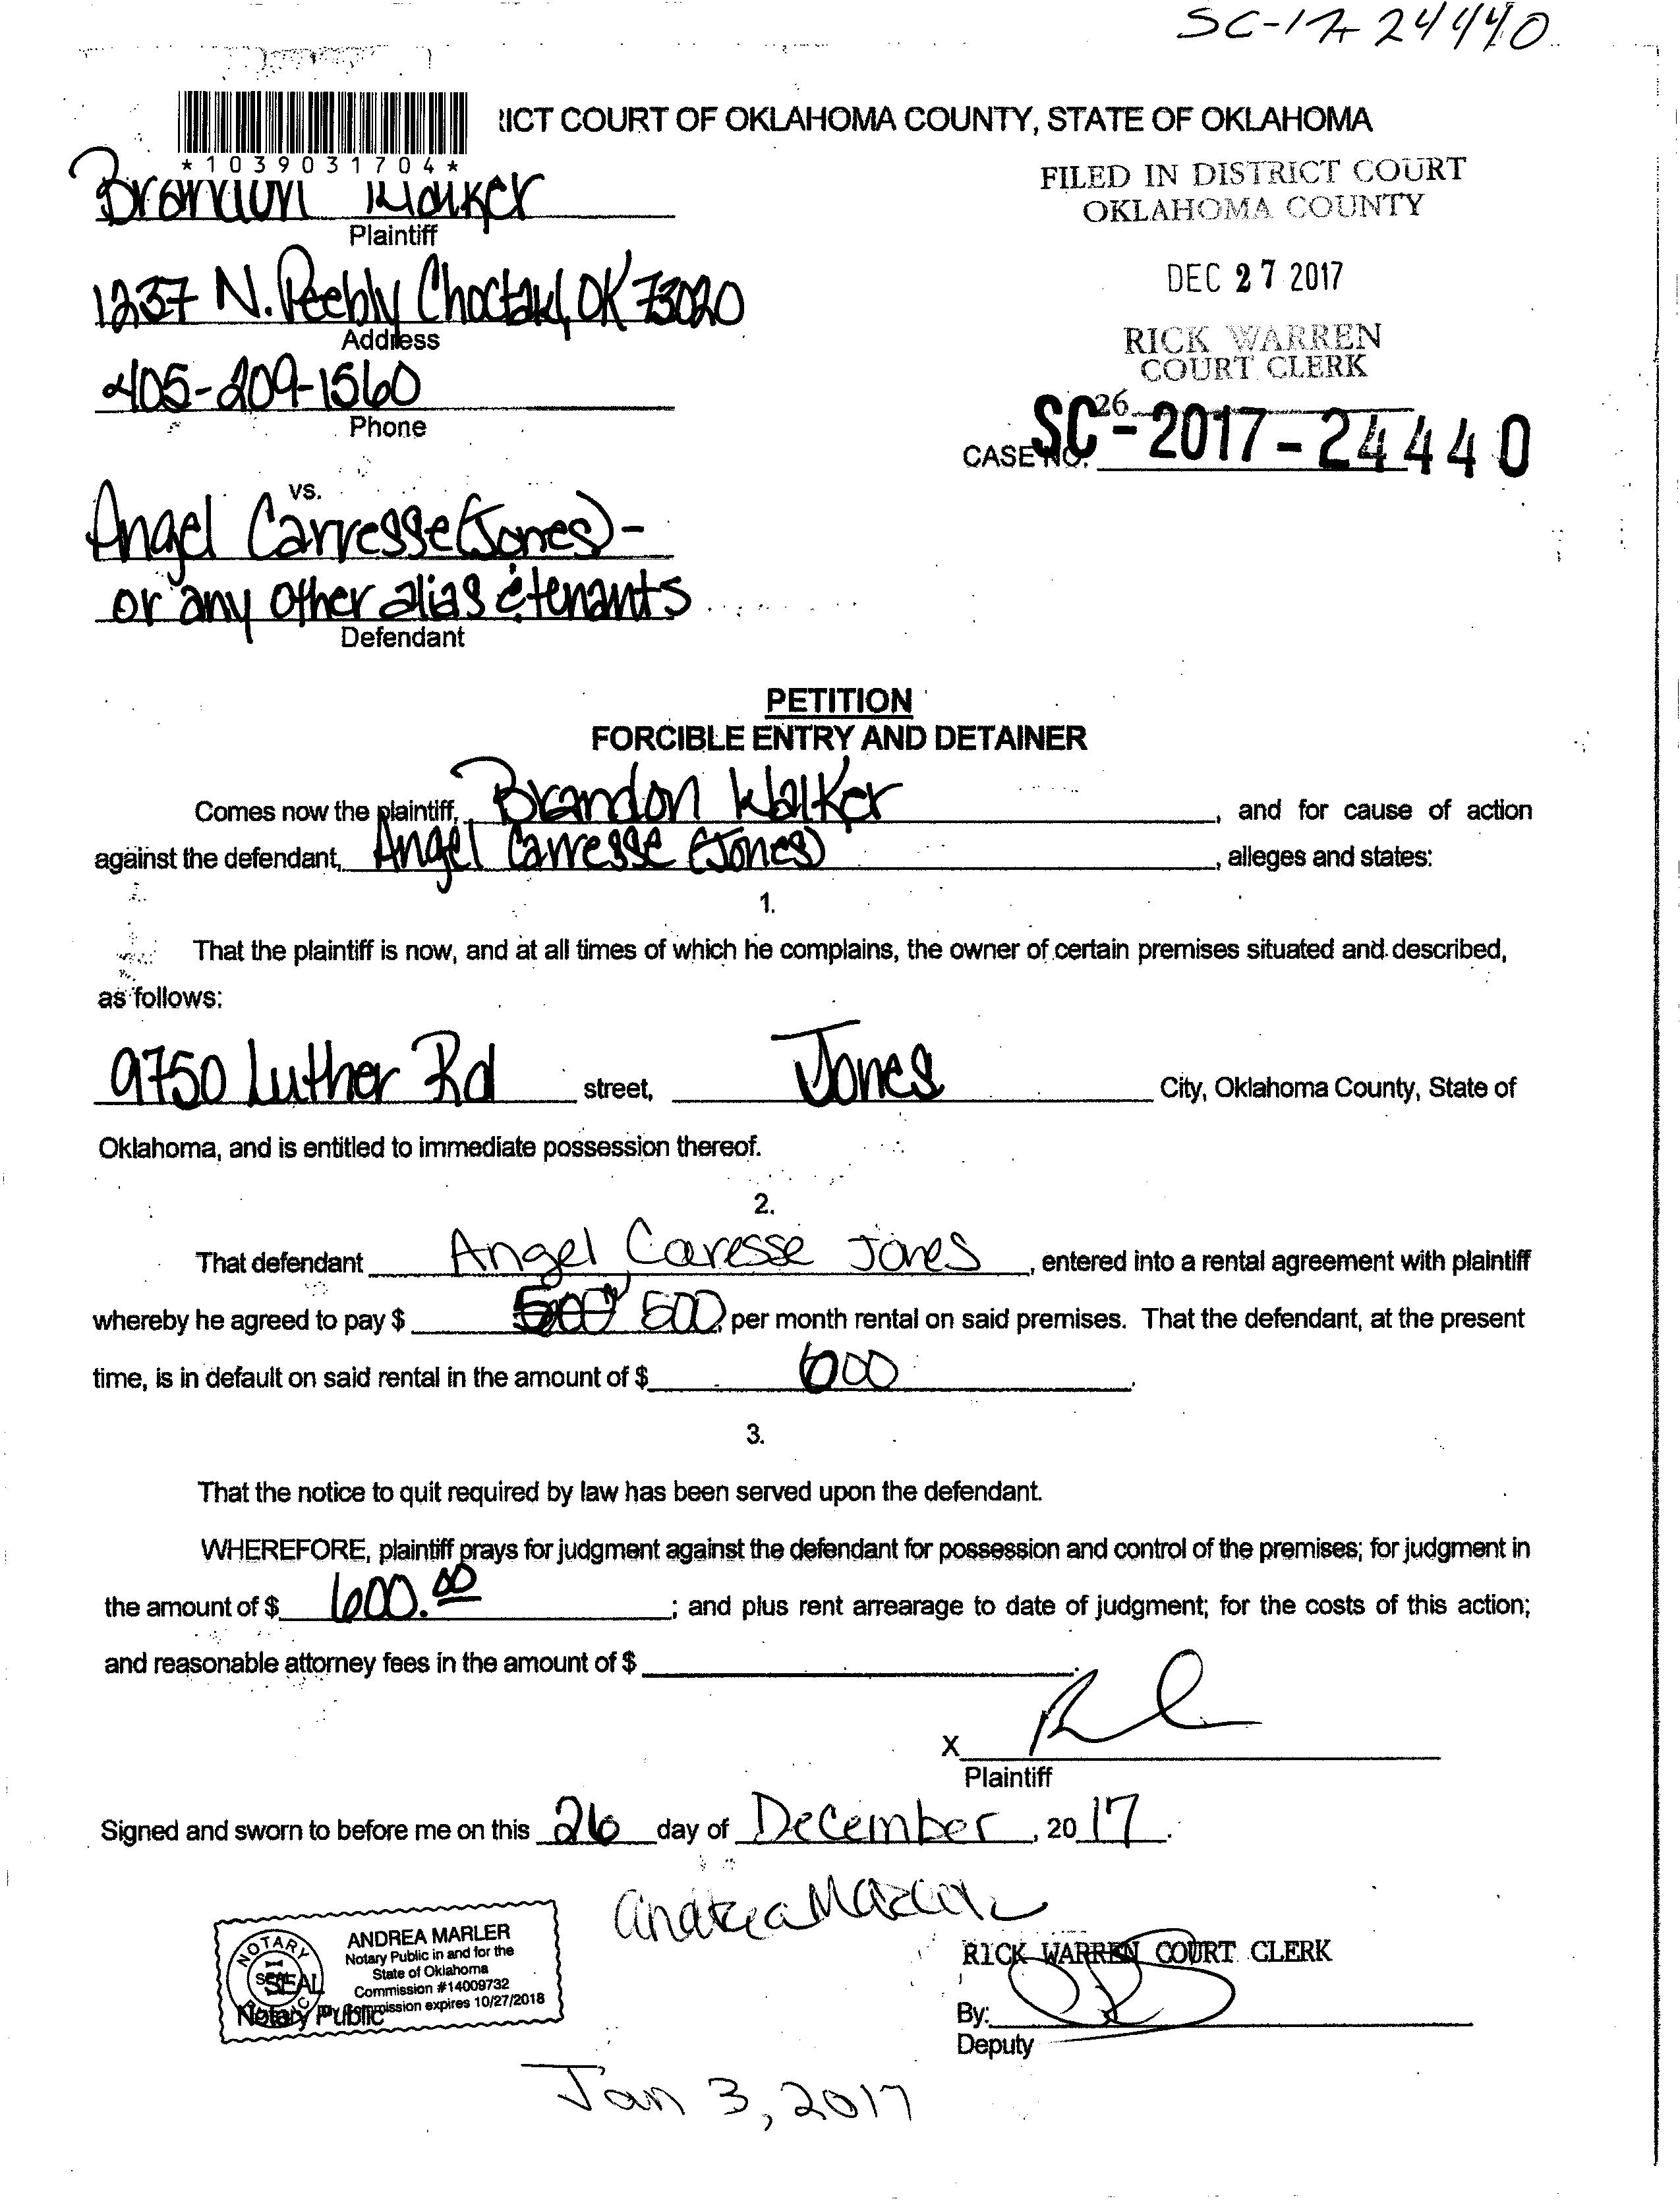 SC-17-24440
*1039031704*
ICT COURT OF OKLAHOMA COUNTY, STATE OF OKLAHOMA
FILED IN DISTRICT COURT
OKLAHOMA COUNTY
Brandon Walker
Plaintiff
DEC 27 2017
1237 N. Peebly Choctaw, OK 73020
Address
RICK WARREN
COURT CLERK
405-209-1560
Phone
26
CASE NO. SC-2017-24440
vs.
Angel Carresse (Jones)-
or any other alias & tenants
Defendant
PETITION
FORCIBLE ENTRY AND DETAINER
Comes now the plaintiff, Brandon Walker, and for cause of action
against the defendant, Angel Carresse (Jones), alleges and states:
1.
That the plaintiff is now, and at all times of which he complains, the owner of certain premises situated and described,
as follows:
9750 Luther Rd street, Jones City, Oklahoma County, State of
Oklahoma, and is entitled to immediate possession thereof.
2.
That defendant Angel Caresse Jones, entered into a rental agreement with plaintiff
whereby he agreed to pay $ 500, per month rental on said premises. That the defendant, at the present
time, is in default on said rental in the amount of $ 600.
3.
That the notice to quit required by law has been served upon the defendant.
WHEREFORE, plaintiff prays for judgment against the defendant for possession and control of the premises; for judgment in
the amount of $ 600.00; and plus rent arrearage to date of judgment; for the costs of this action;
and reasonable attorney fees in the amount of $
X
Plaintiff
Signed and sworn to before me on this 26 day of December, 2017.
Andrea Marler
ANDREA MARLER
Notary Public in and for the
State of Oklahoma
Commission #14009732
My Commission expires 10/27/2018
NOTARY
SEAL
PUBLIC
SEAL
Notary Public
RICK WARREN COURT CLERK
By:
Deputy
Jan 3, 2017